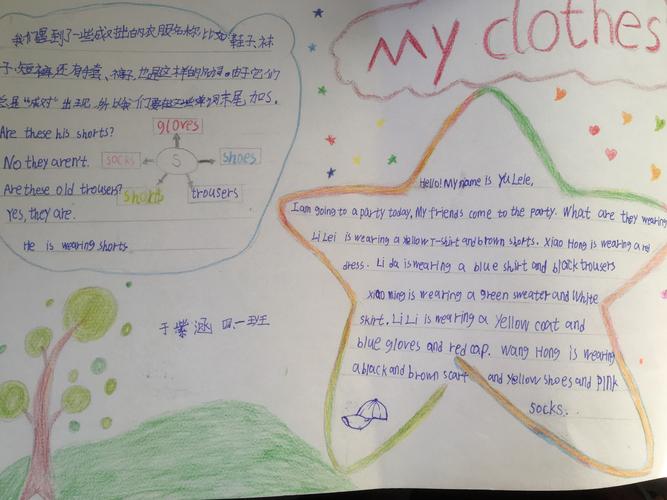 My clothes
我们遇到了一些成双成对的衣服名称,比如鞋子、袜
子、短裤还有手套、裤子,也是这样的
总是"成对"出现,所以我们要在这些单词末尾加S。
Are these his shorts?
No they aren't.
Are these old trousers?
Yes, they are.
He is wearing shorts
gloves
socks
S
shoes
shorts
trousers
Hello! My name is Yu Lele,
I am going to a party today, My friends come to the party. What are they wearing
Li Lei is wearing a yellow T-shirt and brown shorts. Xiao Hong is wearing a red
dress. Li da is wearing a blue shirt and black trousers
Xiao ming is wearing a green sweater and white
skirt. Li Li is wearing a yellow coat and
blue gloves and red cap. Wang Hong is wearing
a black and brown scarf and yellow shoes and pink
socks.
于紫涵 四一班